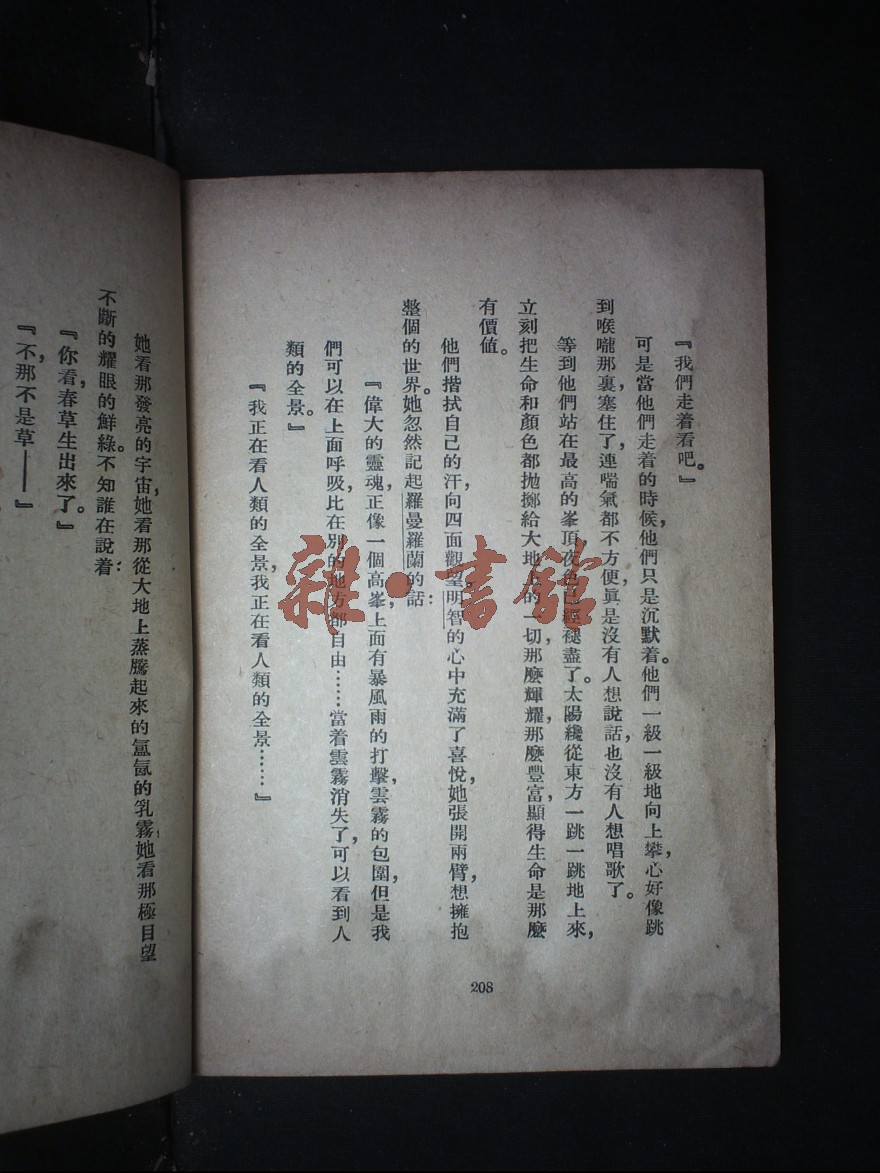 『我們走着看吧。』
可是當他們走着的時候，他們只是沉默着。他們一級一級地向上攀，心好像跳
到喉嚨那裏塞住了，連喘氣都不方便，眞是沒有人想說話，也沒有人想唱歌了。
等到他們站在最高的峯頂，夜色已經褪盡了。太陽纔從東方一跳一跳地上來，
立刻把生命和顏色都拋擲給大地上的一切，那麼輝耀，那麼豐富，顯得生命是那麼
有價值。
他們揩拭自己的汗，向四面觀望。明智的心中充滿了喜悅，她張開兩臂，想擁抱
整個的世界。她忽然記起羅曼羅蘭的話：
『偉大的靈魂，正像一個高峯，上面有暴風雨的打擊，雲霧的包圍，但是我
們可以在上面呼吸，比在別的地方都自由……當着雲霧消失了，可以看到人
類的全景。』
『我正在看人類的全景，我正在看人類的全景……』
208
她看那發亮的宇宙，她看那從大地上蒸騰起來的氳氤的乳霧，她看那極目望
不斷的耀眼的鮮綠。不知誰在說着：
『你看，春草生出來了。』
『不，那不是草——』
雜·書館